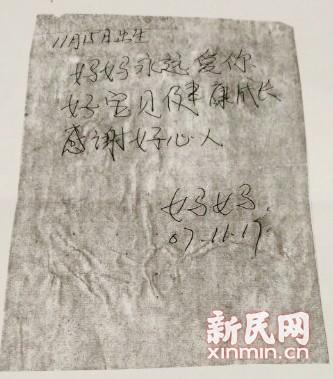 11月15日出生
妈妈永远爱你
好宝贝健康成长
感谢好心人
妈妈.
07.11.17.
新民网
xinmin.cn